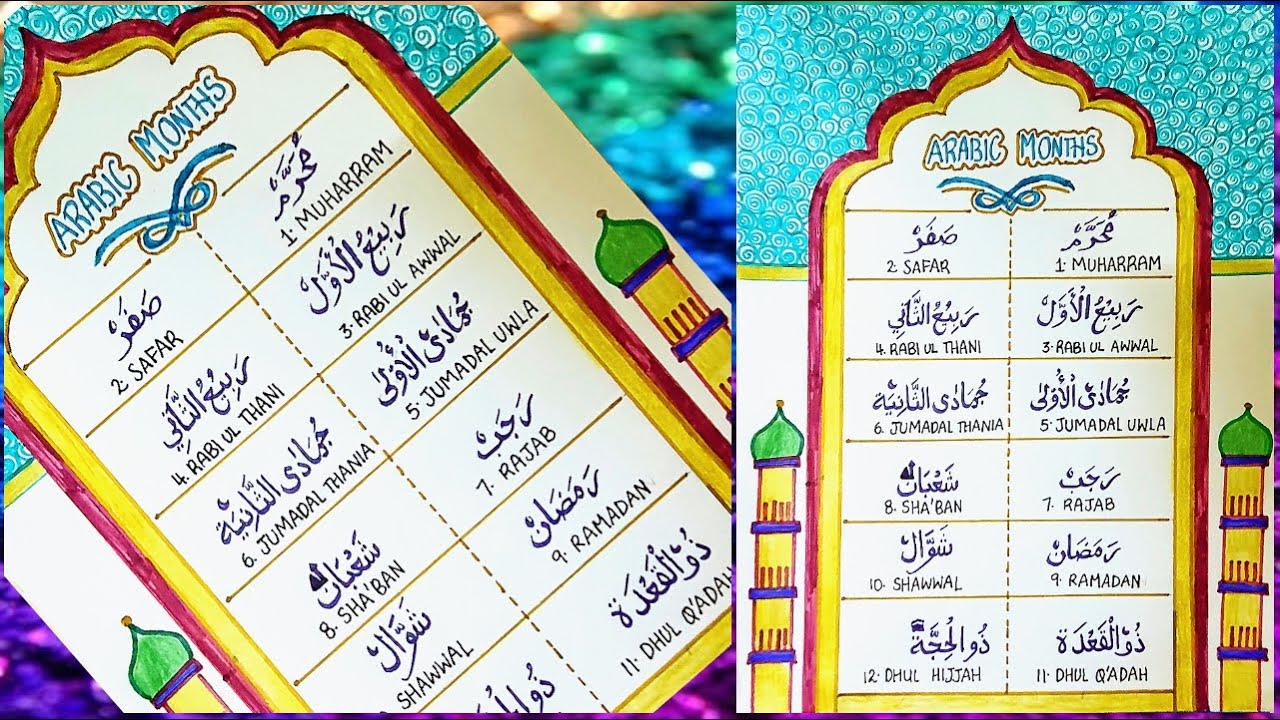 ARABIC MONTHS
مُحَرَّمْ
1. MUHARRAM
صَفَرْ
2. SAFAR
رَبِيْعُ الْأَوَّلْ
3. RABI UL AWWAL
رَبِيْعُ الثَّانِي
4. RABI UL THANI
جُمَادَى الْأُوْلٰى
5. JUMADAL UWLA
جُمَادَى الثَّانِيَة
6. JUMADAL THANIA
رَجَبْ
7. RAJAB
شَعْبَانْ
8. SHA'BAN
رَمَضَانْ
9. RAMADAN
شَوَّالْ
SHAWWAL
ذُوْالْقَعْدَة
11. DHUL Q'ADAH
ARABIC MONTHS
مُحَرَّمْ
1. MUHARRAM
صَفَرْ
2. SAFAR
رَبِيْعُ الْأَوَّلْ
3. RABI UL AWWAL
رَبِيْعُ الثَّانِي
4. RABI UL THANI
جُمَادَى الْأُوْلٰى
5. JUMADAL UWLA
جُمَادَى الثَّانِيَة
6. JUMADAL THANIA
رَجَبْ
7. RAJAB
شَعْبَانْ
8. SHA'BAN
رَمَضَانْ
9. RAMADAN
شَوَّالْ
10. SHAWWAL
ذُوْالْقَعْدَة
11. DHUL Q'ADAH
ذُوالْحِجَّة
12. DHUL HIJJAH